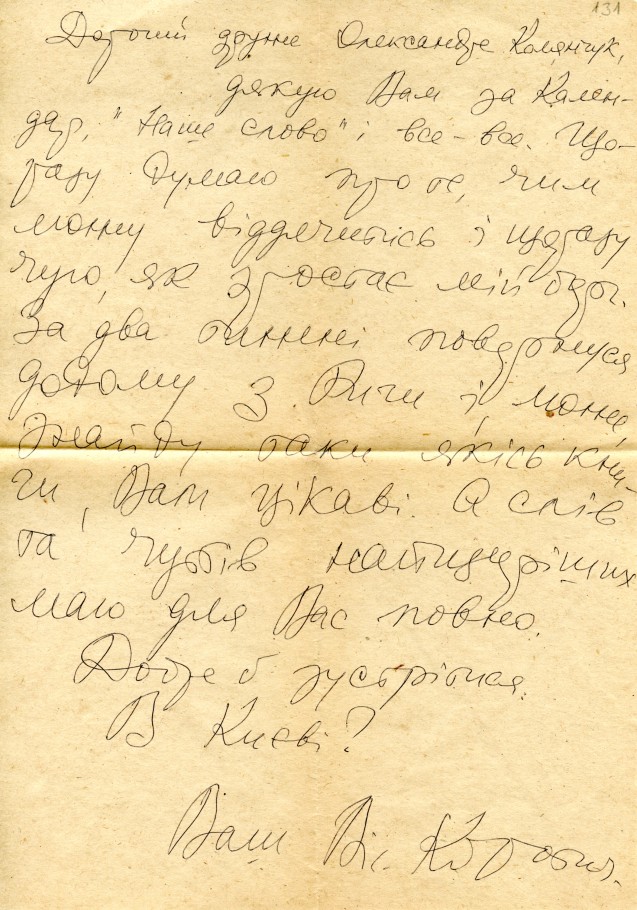 131
Дорогий друже Олександре Колянчук,
дякую Вам за Кален-
дар, "Наше слово" і все-все. Що-
разу думаю про те, чим
можу віддячитись і щоразу
чую, як зростає мій борг.
За два тижні повернуся
додому з Риги і, може,
знайду таки якісь кни-
ги, Вам цікаві. А слів
та чуттів найщиріших
маю для Вас повно.
Добре б зустрітися.
В Києві?
Ваш Віт. Коротич.